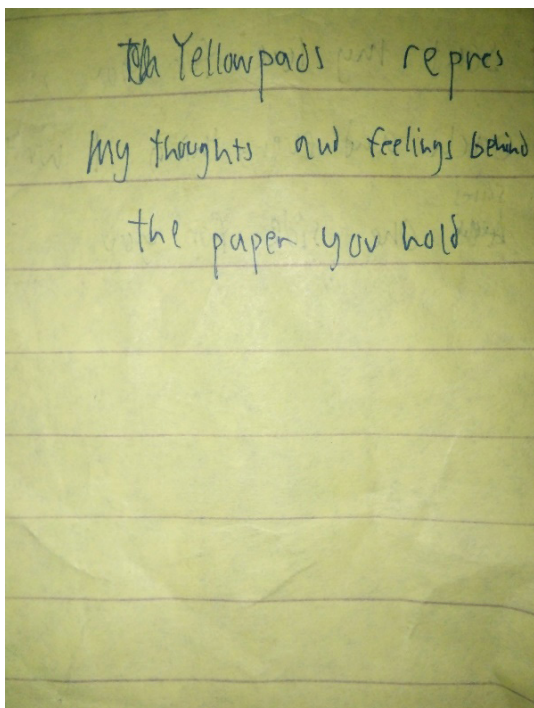 Yellowpads repres
my thoughts and feelings behind
the paper you hold